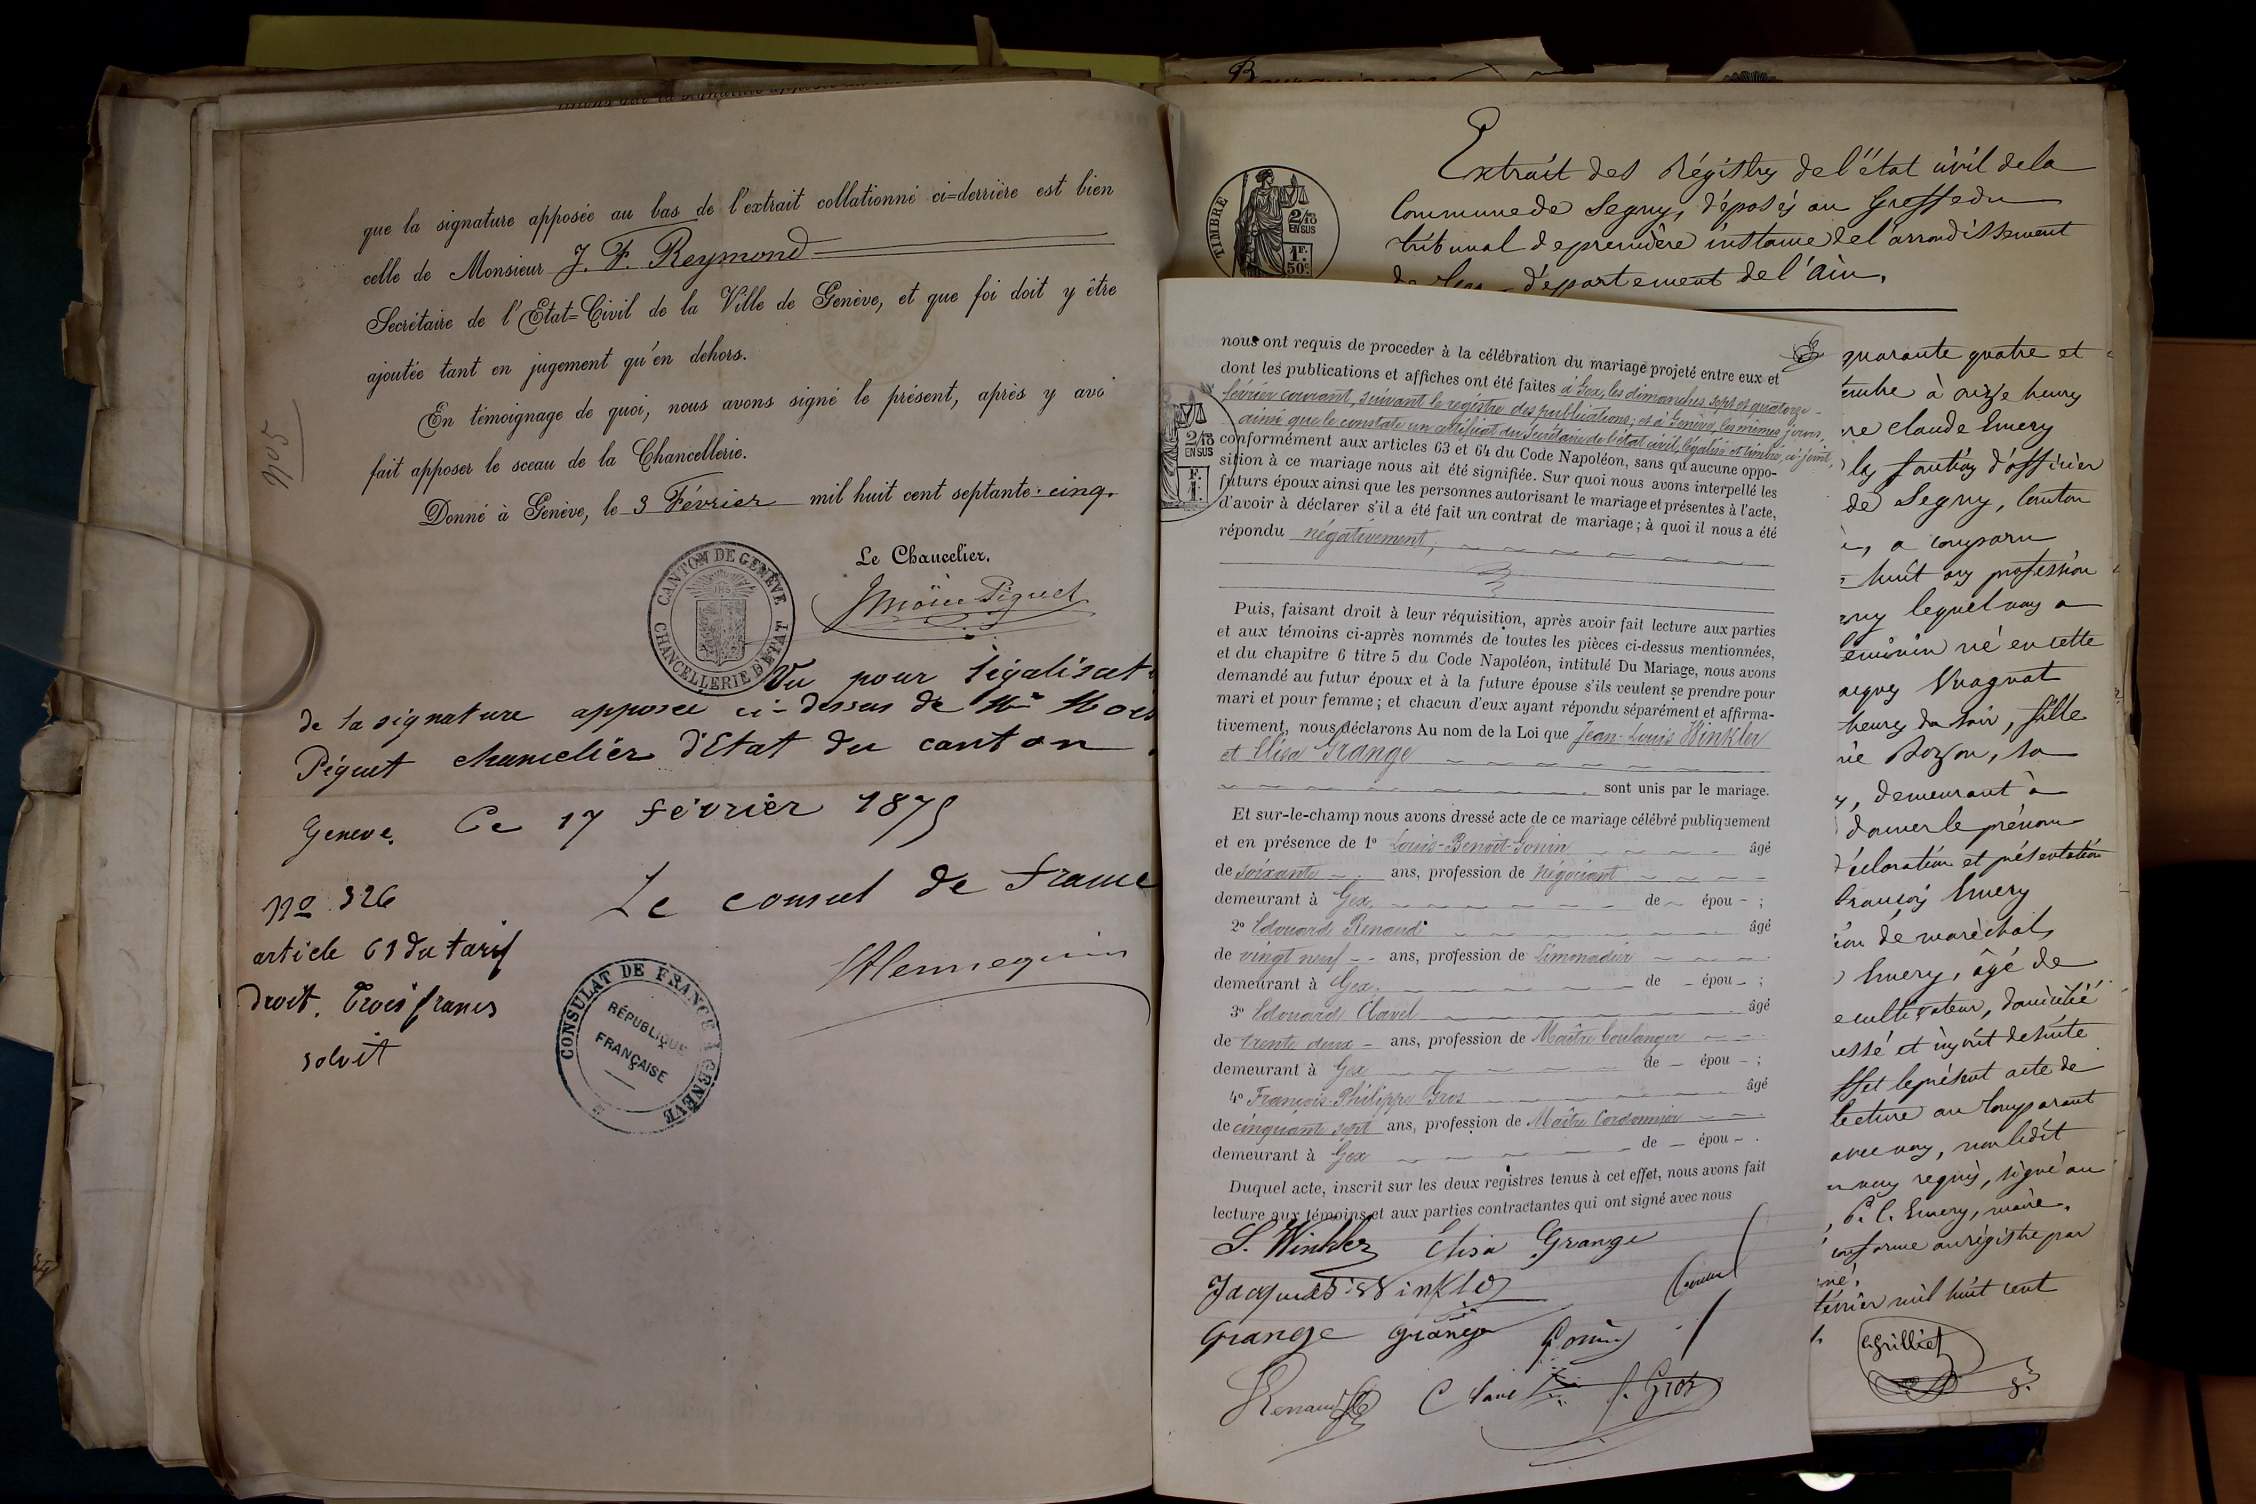 que la signature apposée au bas de l'extrait collationné ci=derrière est bien
celle de Monsieur J. F. Reymond
Secrétaire de l'Etat=Civil de la Ville de Genève, et que foi doit y être
ajoutée tant en jugement qu'en dehors.
En témoignage de quoi, nous avons signé le présent, après y avo
fait apposer le sceau de la Chancellerie.
Donné à Genève, le 3 Février mil huit cent septante-cinq.
No 5
Le Chancelier.
Moïse Piguet
CANTON DE GENÈVE
CHANCELLERIE D'ETAT
Vu pour légalisat
de la signature apposée ci-dessus de Mr Moïs
Piguet chancelier d'Etat du canton
Geneve. Ce 17 février 1875
No 326
Le consul de France
article 61 du tarif
droit. Trois francs
soluit
Hennequin
CONSULAT DE FRANCE À GENÈVE
RÉPUBLIQUE
FRANÇAISE
Extrait des Régistres de l'état civil de la
Commune de Segny, déposés au Greffe du
tribunal de première instance de l'arrondissement
de Gex, département de l'Ain.
TIMBRE
2/10
EN SUS
1F.
50c
nous ont requis de procéder à la célébration du mariage projeté entre eux et
dont les publications et affiches ont été faites à Gex, les dimanches sept et quatorze
février courant, suivant le registre des publications; et à Genève, les mêmes jours,
ainsi que le constate un certificat du Secrétaire de l'état civil, légalisé et timbré, ci-joint,
conformément aux articles 63 et 64 du Code Napoléon, sans qu'aucune oppo-
sition à ce mariage nous ait été signifiée. Sur quoi nous avons interpellé les
futurs époux ainsi que les personnes autorisant le mariage et présentes à l'acte,
d'avoir à déclarer s'il a été fait un contrat de mariage; à quoi il nous a été
répondu négativement,
2/10
EN SUS
F.
1.
Puis, faisant droit à leur réquisition, après avoir fait lecture aux parties
et aux témoins ci-après nommés de toutes les pièces ci-dessus mentionnées,
et du chapitre 6 titre 5 du Code Napoléon, intitulé Du Mariage, nous avons
demandé au futur époux et à la future épouse s'ils veulent se prendre pour
mari et pour femme; et chacun d'eux ayant répondu séparément et affirma-
tivement, nous déclarons Au nom de la Loi que Jean-Louis Winkler
et Elisa Grange
sont unis par le mariage.
Et sur-le-champ nous avons dressé acte de ce mariage célébré publiquement
et en présence de 1º Louis-Benoit Gonin âgé
de soixante ans, profession de négociant
demeurant à Gex, de épou ;
2º Edouard Renaud âgé
de vingt neuf ans, profession de Limonadier
demeurant à Gex, de épou ;
3º Edouard Clavel âgé
de trente deux ans, profession de Maître boulanger
demeurant à Gex de épou ;
4º François-Philippe Gros âgé
de cinquante sept ans, profession de Maître Cordonnier
demeurant à Gex de épou .
Duquel acte, inscrit sur les deux registres tenus à cet effet, nous avons fait
lecture aux témoins et aux parties contractantes qui ont signé avec nous
L. Winkler Elisa Grange
Jacques Winkler
Grange Grange Gonin
Renaud Clavel f. Gros
quarante quatre et
tembre à onze heures
re claude Emery
les fonctions d'officier
de Segny, canton
a comparu
huit ans profession
gny lequel nous a
éminin né en cette
acques Vuagnat
heures du soir, fille
rie Rozon, sa
y, demeurant à
donner le prénom
déclaration et présentation
françois Emery
ion de maréchal
Emery, âgé de
cultivateur, domicilié
ressé et inscrit de suite
ffet le présent acte de
lecture au Comparant
avec nous, non ledit
requis, signé au
, C. C. Emery, maire.
conforme au régistre par
gné.
février mil huit cent
Grilliet